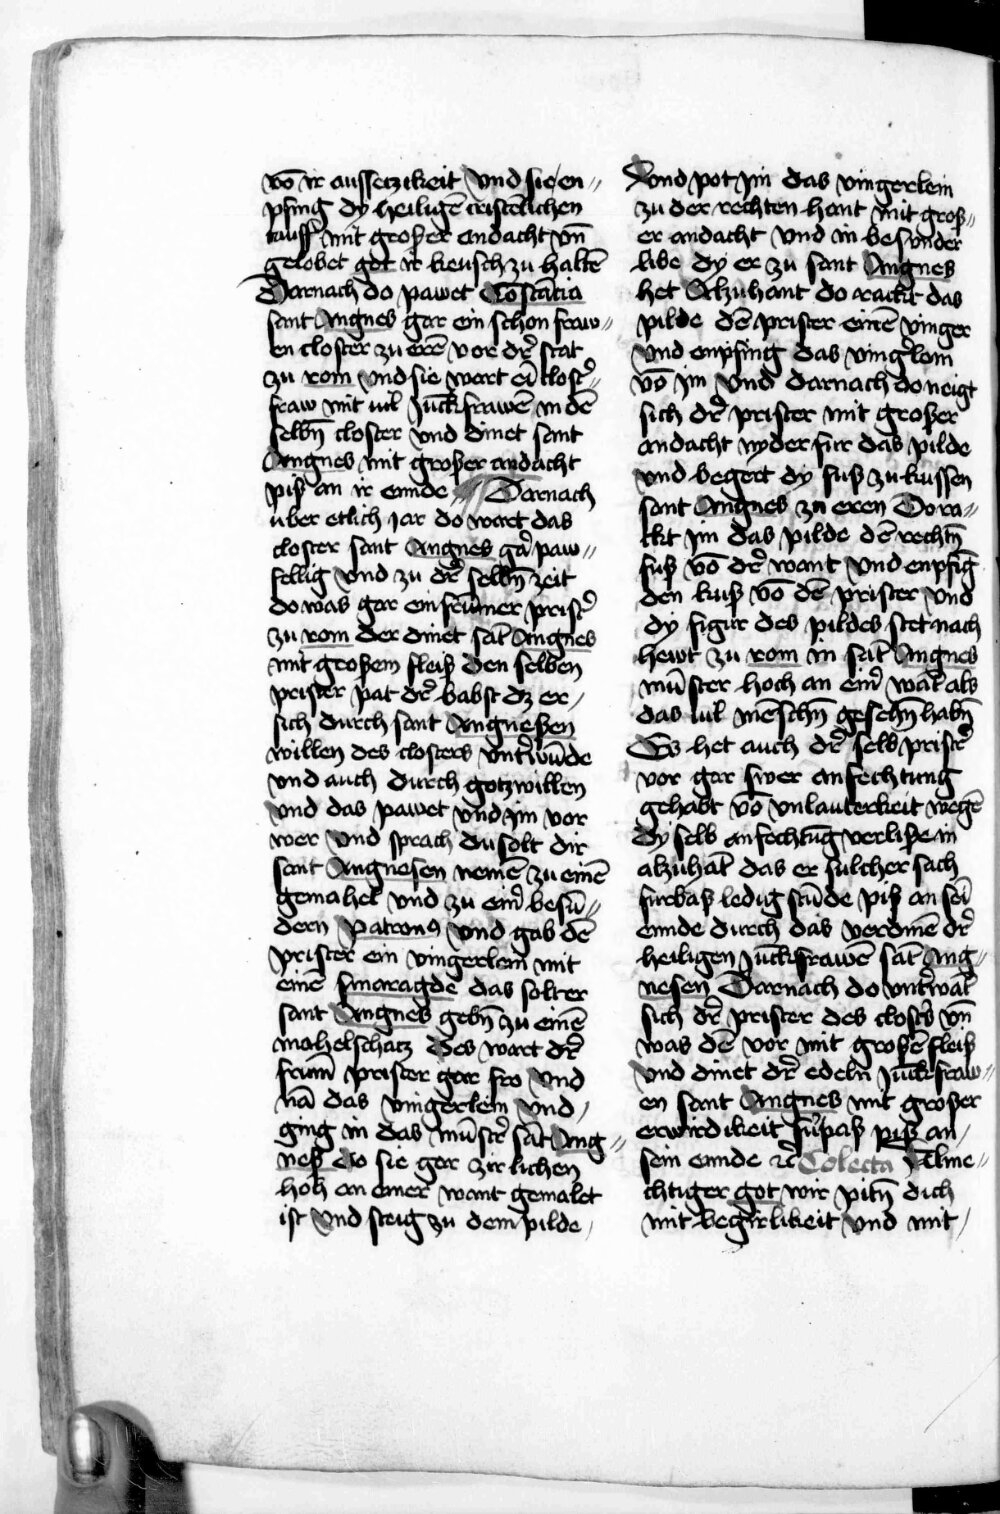 vō ir aussetzikeit Vnd sie en„
pfing dy heiligē cristēlichen
tauff mit großer andacht vn̄
gelobet got ir keusch zu haltē
Darnach do pawet Cōstācia
sant Angnes gar ein schon fraw„
en closter zu erē vor dr̄ stat
zu rom Vnd sie wart ei clost̄„
fraw mit uil Jūckfrawē in dē
selbn̄ closter Vnd dinet sant
Angnes mit großer andacht
piß an ir ennde Darnach
über etlich jar do wart das
closter sant Angnes gar̄ paw„
fellig Vnd zu dr̄ selbn̄ zeit
do was gar ein frūmer prist̄
zu rom der dinet sāt Angnes
mit großem fleiß den selben
prister pat dr̄ babst dz er
sich durch sant Angneßen
willen des closters vnt̄wūde
vnd auch durch gotz willen
Vnd das pawet vnd jm vor
wer Vnd sprach du solt dir
sant Angnesen nemē zu einē
gemahel Vnd zu eim̄ besū„
dern patron9 Vnd gab dē
prister ein vingerlein mit
einē smaragde das solt er
sant Angnes gebn̄ zu einē
mahelschatz Des wart dr̄
frum̄ prister gar fro Vnd
nā das vingerlein Vnd
ging in das mūstr̄ sāt Ang„
neß do sie gar zirlichen
hoh an einer want gemalet
ist Vnd steig zu dem pilde
Vnd pot jm das vingerlein
zu der rechten hant mit groß„
er andacht Vnd in besvnder
libe dy er zu sant Angnes
het Alzuhant do rackt das
pilde dē prister einē vinger
Vnd enpfing das vinḡlein
vō jm Vnd darnach do neigt
sich dr̄ prister mit großer
andacht nyder für das pilde
vnd begert dy fuß zu kussen
sant Angnes zu eren Do ra„
ckt jm das pilde dē rechtn̄
fuß vō dr̄ want Vnd enpfīg
den kuß vō dē prister Vnd
dy figur des pildes stet nach
hewt zu rom in sāt Angnes
mūster hoch an eim̄ wāt als
das uil mēschn̄ gesehn̄ habn̄
Es het auch dr̄ selb pristr̄
vor gar swer anfechtung
gehabt vō vnlauterkeit wegē
dy selb anfechtūg verliße in
alzuhāt das er sulcher sach
furbaß ledig stūde piß an sei
ennde durch das verdinē dr̄
heiligen Jūckfrawē sāt Ang„
nesen Darnach do vnt̄wāt
sich dr̄ prister des clost̄s vn̄
was dē vor mit großē fleiß
Vnd dinet dr̄ edeln Jūckfraw„
en sant Angnes mit großer
erwirdikeit fur̄paß piß an
sein ennde ꝛc̄ Colecta Alme„
chtiger got wir pitn̄ dich
mit begirlikeit Vnd mit